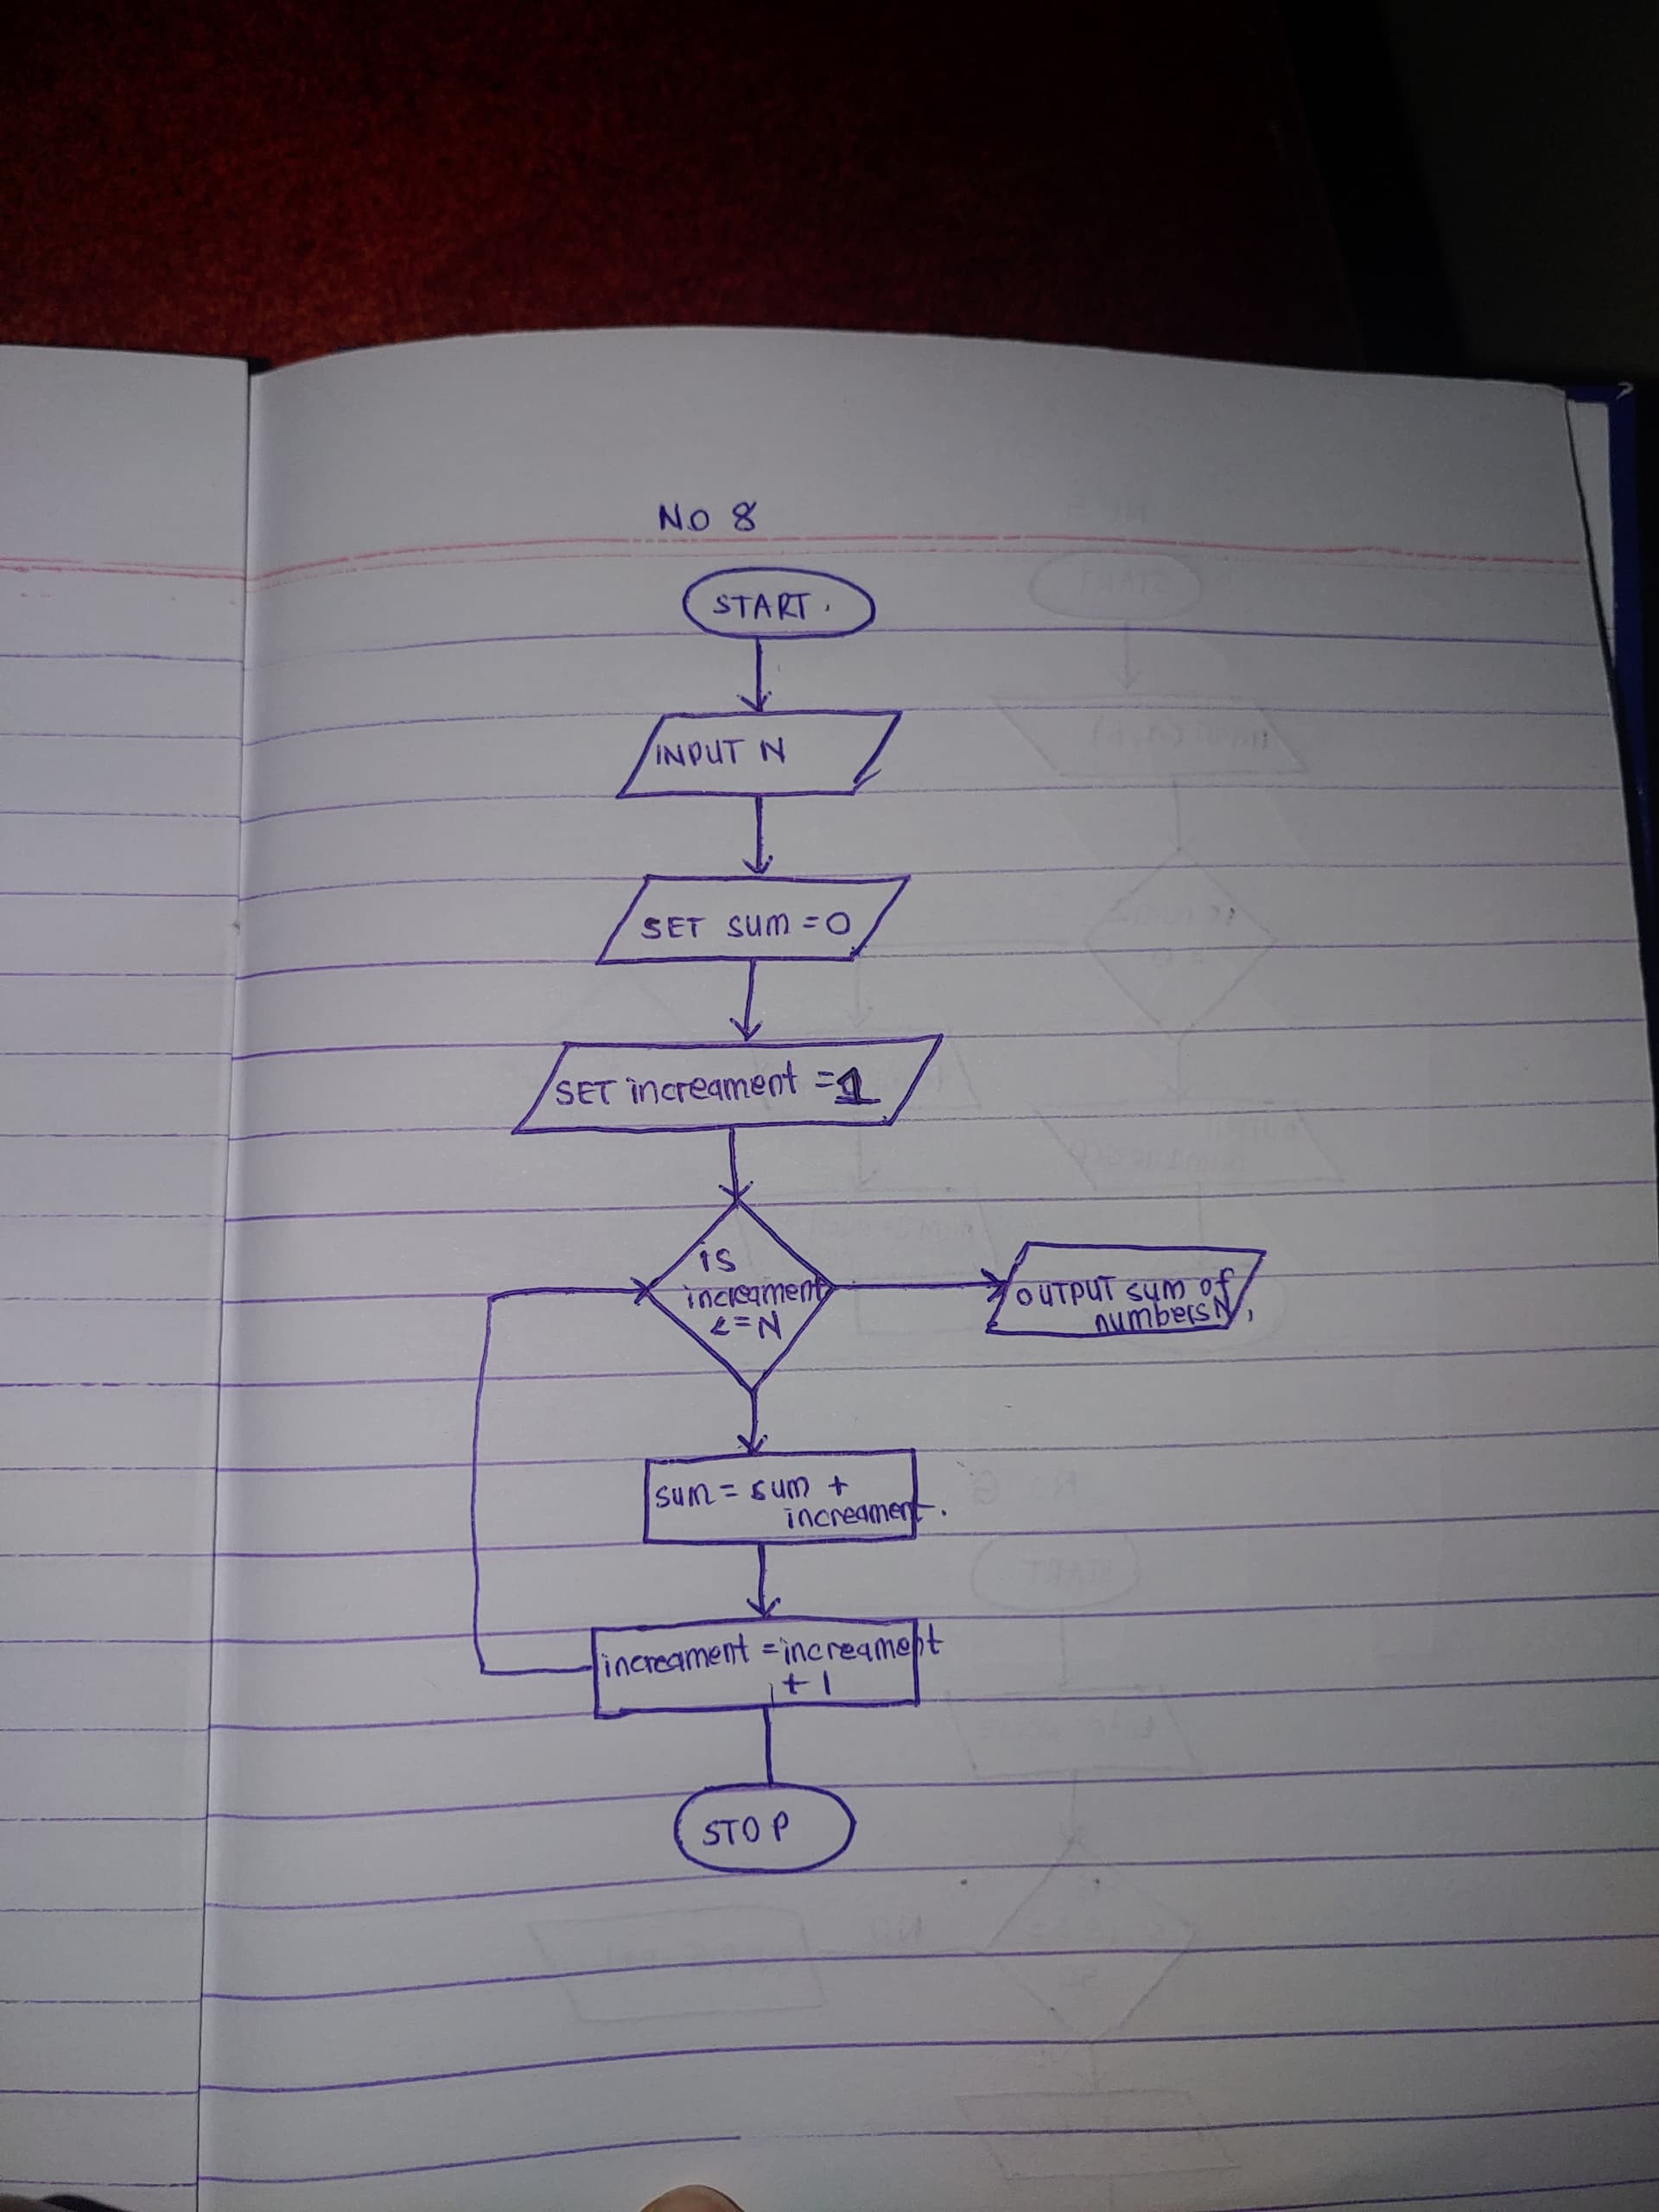 No 8
START.
INPUT N
SET sum = 0
SET increament = 1
is
increament
<=N
OUTPUT sum of
numbers N,
sum = sum +
increament.
increament = increament
+ 1
STOP